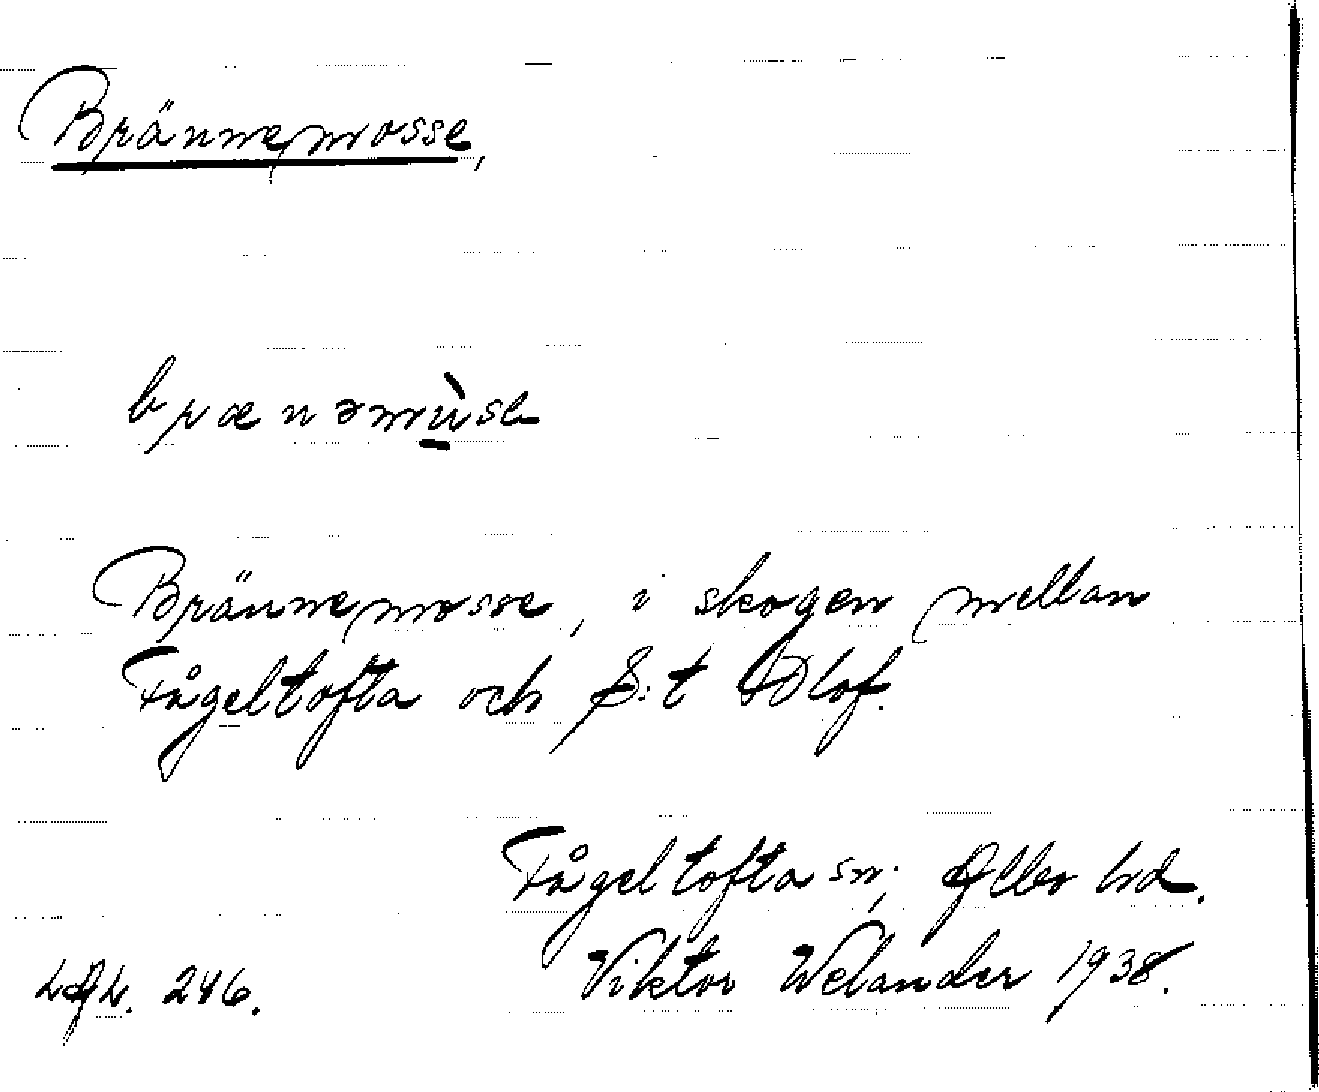 Brännemosse,
brænəmùsa
Brännemosse, i skogen mellan
Fågeltofta och S:t Olof.
Fågeltofta sn; Albo hd.
Viktor Welander 1938.
246.